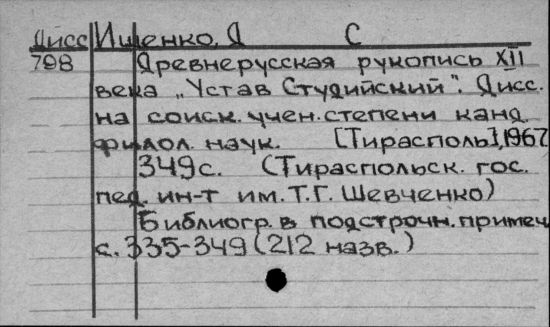 Дисс Ищенко, Д С
798 Древнерусская рукопись XII
века „Устав Студийский”. Дисс.
на соиск. учен. степени канд.
филол. наук. [Тирасполь], 1967
349 с. (Тираспольск. гос.
пед. ин-т им. Т.Г. Шевченко)
Библиогр. в подстрочн. примеч.
с. 335-349 (212 назв.)